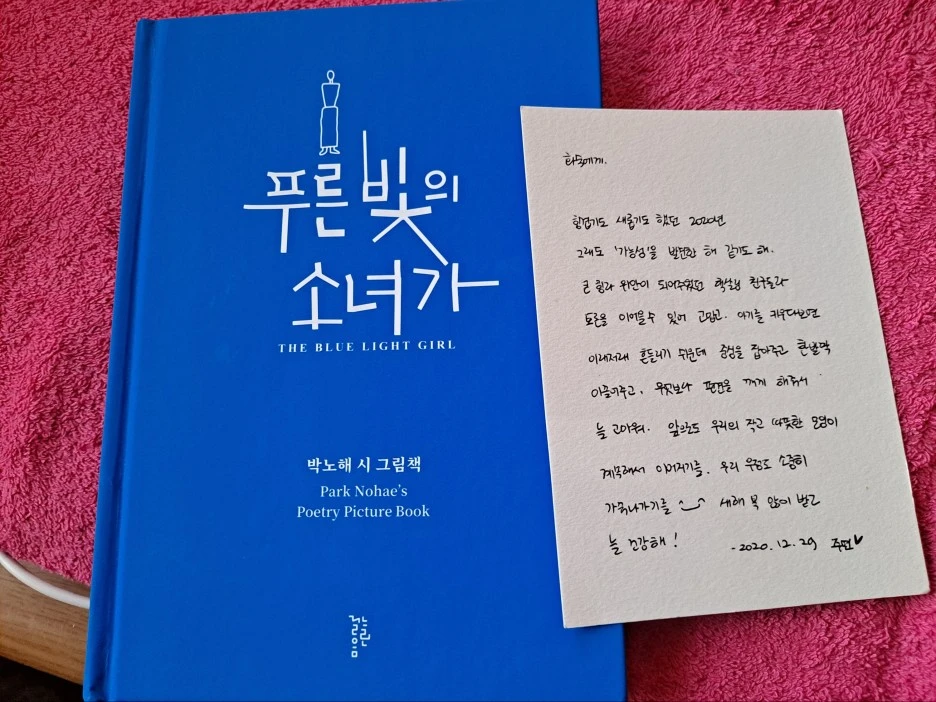 푸른 빛의
소녀가
THE BLUE LIGHT GIRL
박노해 시 그림책
Park Nohae's
Poetry Picture Book
느린걸음
힘겹기도 새롭기도 했던 2020년
그래도 '가능성'을 발견한 해 같기도 해.
큰 힘과 위안이 되어주었던 친구들과
토론을 이어올 수 있어 고맙고. 아기를 키우다보면
이래저래 흔들리기 쉬운데 중심을 잡아주고 한발짝
이끌어주고, 무엇보다 편견을 깨게 해줘서
늘 고마워. 앞으로도 우리의 작고 따뜻한 모임이
계속해서 이어지기를. 우리 우정도 소중히
가꿔나가기를 ^‿^ 새해 복 많이 받고
늘 건강해!
-2020.12.29 ♥